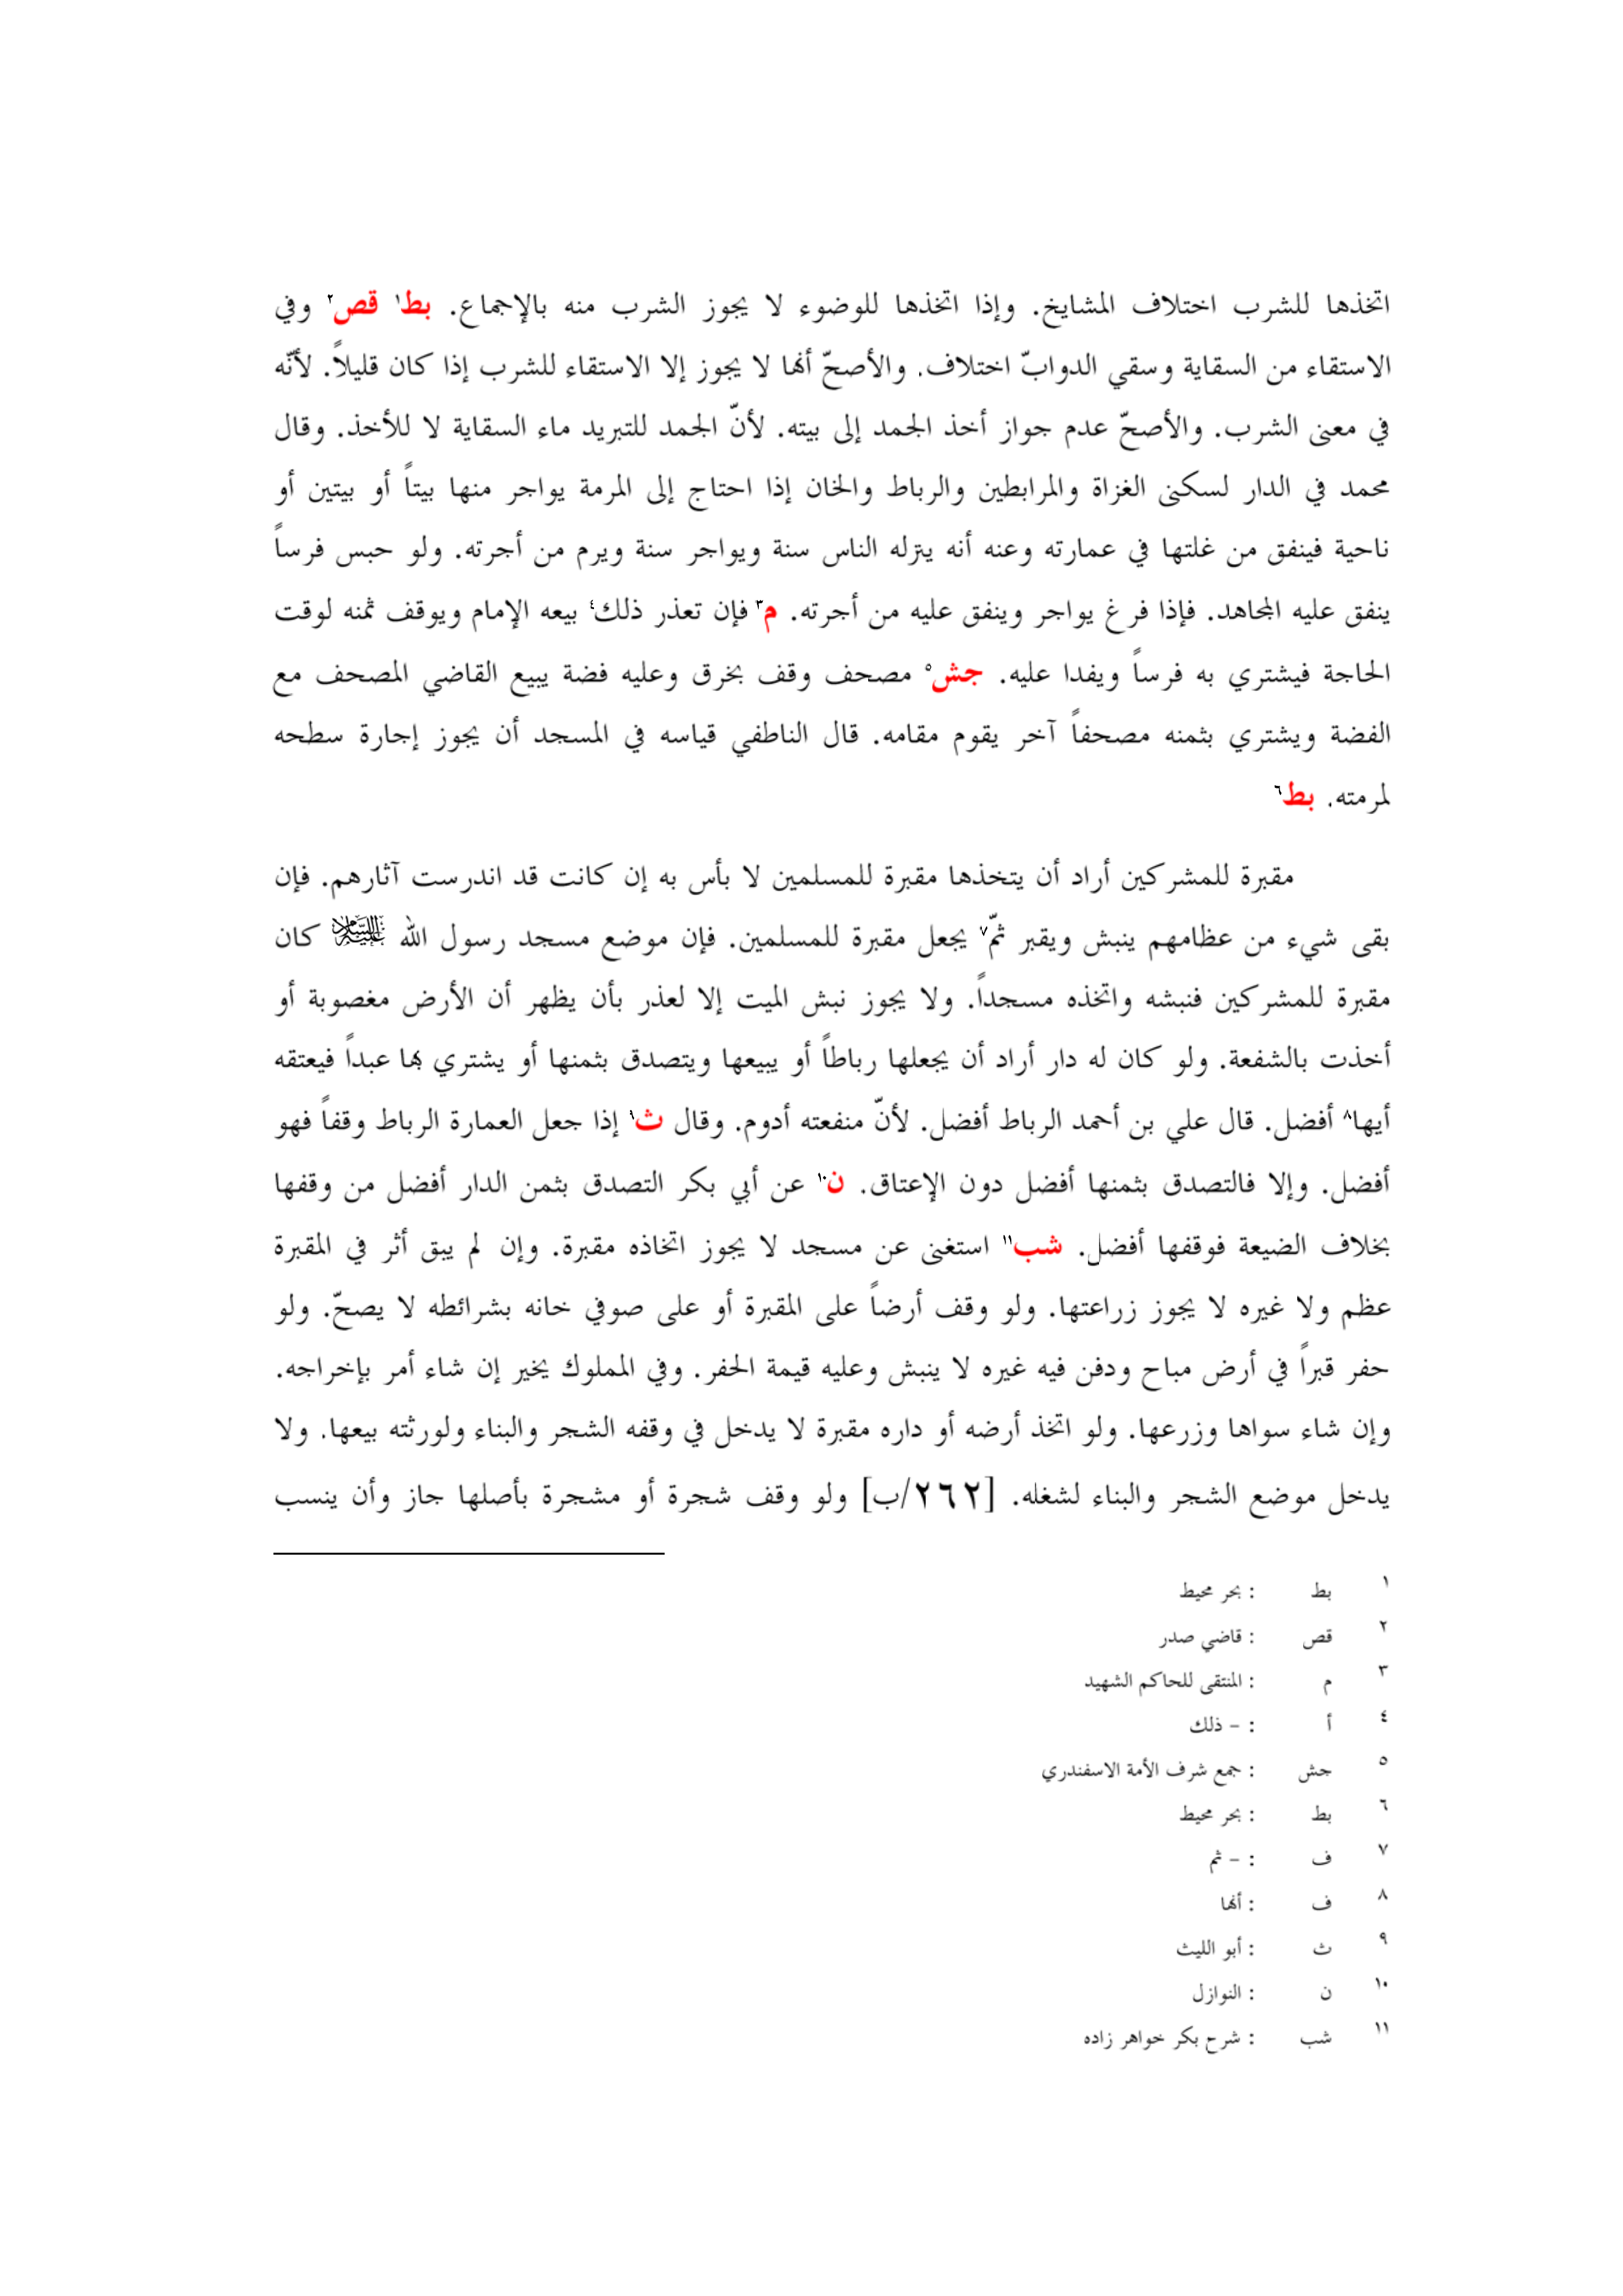 اتخذها للشرب اختلاف المشايخ. وإذا اتخذها للوضوء لا يجوز الشرب منه بالإجماع. بط١ قص٢ وفي
الاستقاء من السقاية وسقي الدوابّ اختلاف. والأصحّ أنها لا يجوز إلا الاستقاء للشرب إذا كان قليلاً. لأنّه
في معنى الشرب. والأصحّ عدم جواز أخذ الجمد إلى بيته. لأنّ الجمد للتبريد ماء السقاية لا للأخذ. وقال
محمد في الدار لسكنى الغزاة والمرابطين والرباط والخان إذا احتاج إلى المرمة يواجر منها بيتاً أو بيتين أو
ناحية فينفق من غلتها في عمارته وعنه أنه ينزله الناس سنة ويواجر سنة ويرم من أجرته. ولو حبس فرساً
ينفق عليه المجاهد. فإذا فرغ يواجر وينفق عليه من أجرته. م٣ فإن تعذر ذلك٤ بيعه الإمام ويوقف ثمنه لوقت
الحاجة فيشتري به فرساً ويفدا عليه. جش٥ مصحف وقف بخرق وعليه فضة يبيع القاضي المصحف مع
الفضة ويشتري بثمنه مصحفاً آخر يقوم مقامه. قال الناطفي قياسه في المسجد أن يجوز إجارة سطحه
لمرمته. بط٦
مقبرة للمشركين أراد أن يتخذها مقبرة للمسلمين لا بأس به إن كانت قد اندرست آثارهم. فإن
بقى شيء من عظامهم ينبش ويقبر ثمّ٧ يجعل مقبرة للمسلمين. فإن موضع مسجد رسول الله كان
مقبرة للمشركين فنبشه واتخذه مسجداً. ولا يجوز نبش الميت إلا لعذر بأن يظهر أن الأرض مغصوبة أو
أخذت بالشفعة. ولو كان له دار أراد أن يجعلها رباطاً أو يبيعها ويتصدق بثمنها أو يشتري بها عبداً فيعتقه
أيها٨ أفضل. قال علي بن أحمد الرباط أفضل. لأنّ منفعته أدوم. وقال ث٩ إذا جعل العمارة الرباط وقفاً فهو
أفضل. وإلا فالتصدق بثمنها أفضل دون الإعتاق. ن١٠ عن أبي بكر التصدق بثمن الدار أفضل من وقفها
بخلاف الضيعة فوقفها أفضل. شب١١ استغنى عن مسجد لا يجوز اتخاذه مقبرة. وإن لم يبق أثر في المقبرة
عظم ولا غيره لا يجوز زراعتها. ولو وقف أرضاً على المقبرة أو على صوفي خانه بشرائطه لا يصحّ. ولو
حفر قبراً في أرض مباح ودفن فيه غيره لا ينبش وعليه قيمة الحفر. وفي المملوك يخير إن شاء أمر بإخراجه.
وإن شاء سواها وزرعها. ولو اتخذ أرضه أو داره مقبرة لا يدخل في وقفه الشجر والبناء ولورثته بيعها. ولا
يدخل موضع الشجر والبناء لشغله. [٢٦٢/ب] ولو وقف شجرة أو مشجرة بأصلها جاز وأن ينسب
١ بط : بحر محيط
٢ قص : قاضي صدر
٣ م : المنتقى للحاكم الشهيد
٤ أ : - ذلك
٥ جش : جمع شرف الأمة الاسفندري
٦ بط : بحر محيط
٧ ف : - ثم
٨ ف : أنها
٩ ث : أبو الليث
١٠ ن : النوازل
١١ شب : شرح بكر خواهر زاده